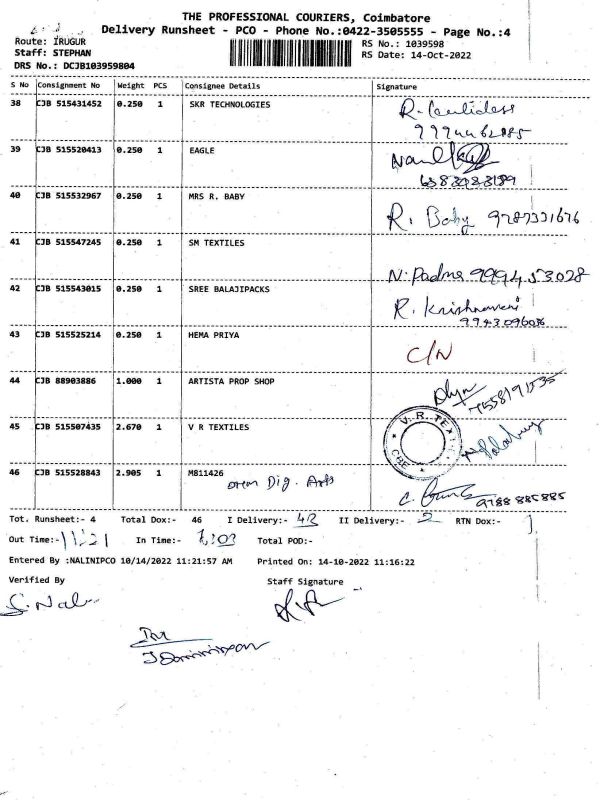 THE PROFESSIONAL COURIERS, Coimbatore
Delivery Runsheet - PCO - Phone No.:0422-3505555 - Page No.:4
Route: IRUGUR
RS No.: 1039598
Staff: STEPHAN
RS Date: 14-Oct-2022
DRS No.: DCJB103959804
S No Consignment No Weight PCS Consignee Details Signature
38 CJB 515431452 0.250 1 SKR TECHNOLOGIES
39 CJB 515520413 0.250 1 EAGLE
40 CJB 515532967 0.250 1 MRS R. BABY R. Baby 9787331676
41 CJB 515547245 0.250 1 SM TEXTILES N. Padma 9994453028
42 CJB 515543015 0.250 1 SREE BALAJIPACKS R. Krishnaveni
43 CJB 515525214 0.250 1 HEMA PRIYA C/N
44 CJB 88903886 1.000 1 ARTISTA PROP SHOP
45 CJB 515507435 2.670 1 V R TEXTILES V.R. TEXT CBE
46 CJB 515528843 2.905 1 MB11426 Dig. Arts 9788 885885
Tot. Runsheet:- 4 Total Dox:- 46 I Delivery:- 42 II Delivery:- 2 RTN Dox:- 1
Out Time:- In Time:- Total POD:-
Entered By :NALINIPCO 10/14/2022 11:21:57 AM Printed On: 14-10-2022 11:16:22
Verified By Staff Signature